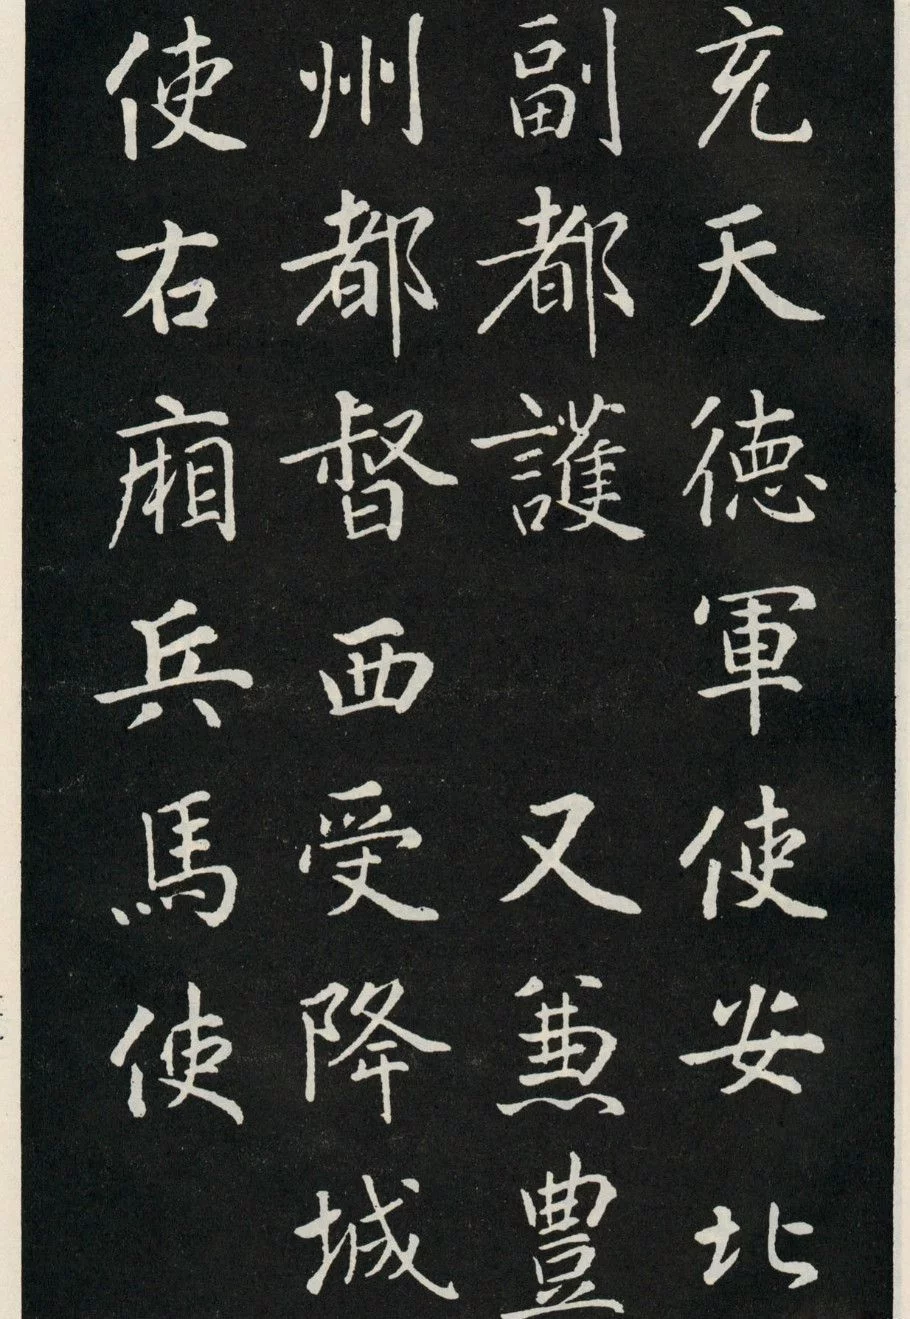 充天德軍使安北
副都護　又兼豊
州都督西受降城
使右廂兵馬使